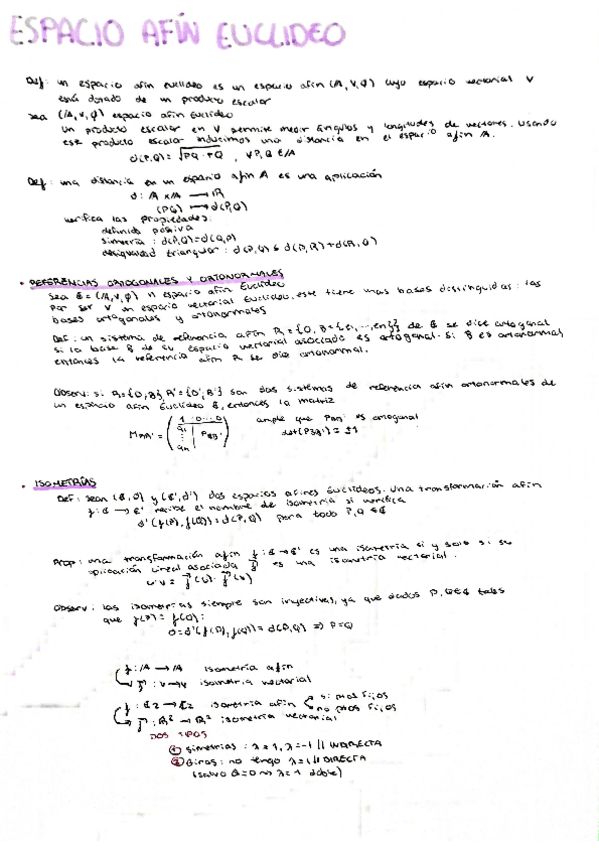 ESPACIO AFÍN EUCLIDEO
Def: un espacio afín euclideo es un espacio afín (A, V, φ) cuyo espacio vectorial V
está dotado de un producto escalar
sea (A, V, φ) espacio afín Euclideo
Un producto escalar en V permite medir ángulos y longitudes de vectores. Usando
este producto escalar inducimos una distancia en el espacio afín A.
d(P,Q) = √PQ · PQ , ∀P,Q ∈ A
Def: una distancia en un espacio afín A es una aplicación
d: A x A → R
(P,Q) → d(P,Q)
verifica las propiedades:
definida positiva
simetría: d(P,Q)=d(Q,P)
desigualdad triangular: d(P,Q) ≤ d(P,R)+d(R,Q)
• REFERENCIAS ORTOGONALES Y ORTONORMALES
Sea E = (A, V, φ) n espacio afín Euclideo
Por ser V un espacio vectorial Euclideo, este tiene unas bases distinguidas: las
bases ortogonales y ortonormales
Def: un sistema de referencia afín R = {O, B = {e1, ..., en}} de E se dice ortogonal
si la base B de su espacio vectorial asociado es ortogonal. Si B es ortonormal,
entonces la referencia afín R se dice ortonormal.
Observ: si R={O,B}, R'={O',B'} son dos sistemas de referencia afín ortonormales de
un espacio afín Euclideo E, entonces la matriz
1 0...0
M RR' = ( a1 ⋮ an | P BB' ) cumple que P BB' es ortogonal
det(P BB') = ±1
• ISOMETRÍAS
Def: sean (E, d) y (E', d') dos espacios afines Euclideos. Una transformación afín
f: E → E' recibe el nombre de isometría si verifica
d'(f(P), f(Q)) = d(P,Q) para todo P,Q ∈ E
Prop: una transformación afín f: E → E' es una isometría si y solo si su
aplicación lineal asociada f es una isometría vectorial.
u·v = f(u) · f(v)
Observ: las isometrías siempre son inyectivas, ya que dados P,Q∈E tales
que f(P) = f(Q):
0=d'(f(P), f(Q)) = d(P,Q) ⇒ P=Q
f: A → A isometría afín
f: V → V isometría vectorial
f: E2 → E2 isometría afín
si ptos fijos
no ptos fijos
f: R² → R² isometría vectorial
DOS TIPOS
① Simetrías: λ=1, λ=-1 // INDIRECTA
② Giros: no tengo λ=1 // DIRECTA
(salvo θ=0 ⇝ λ=1 doble)